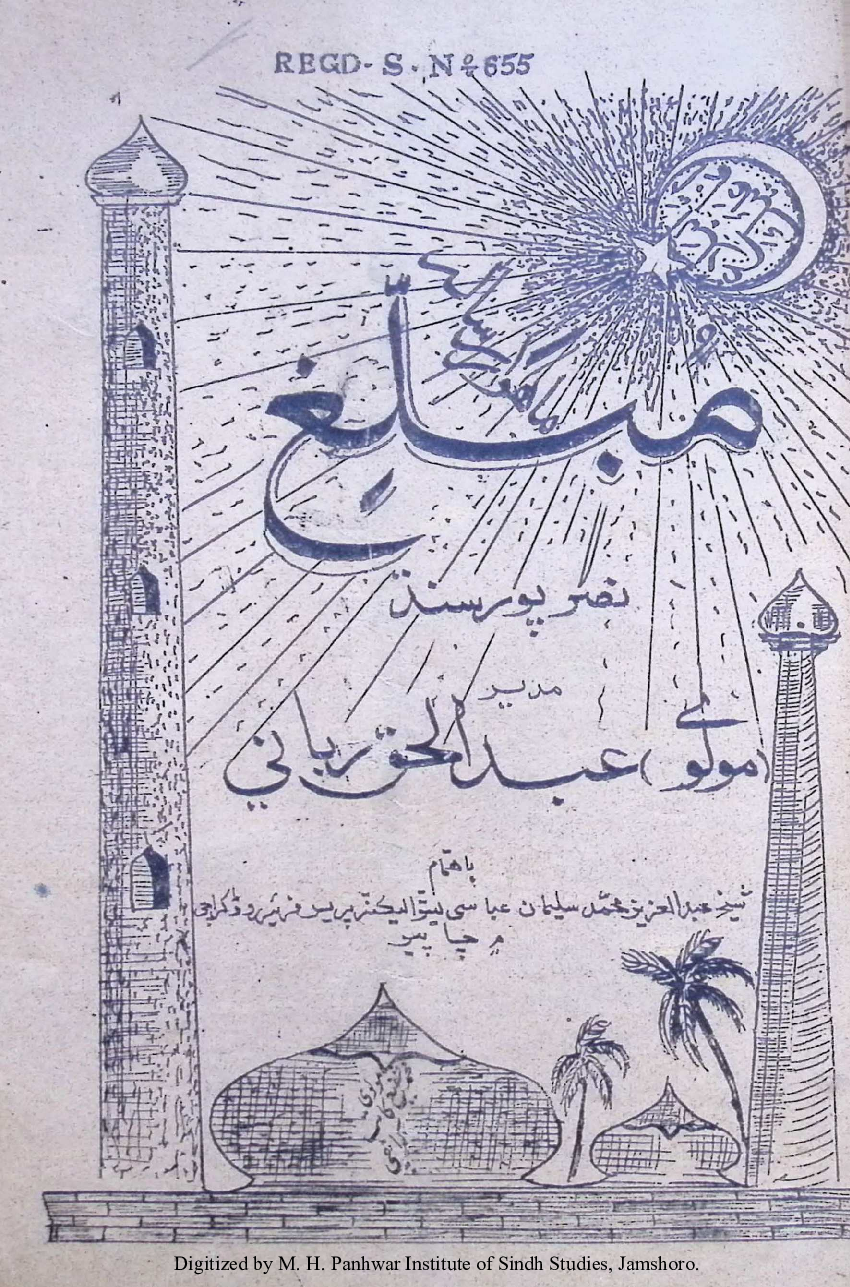 REGD- S. No 655
ماهوار رسالہ
مُبلّغ
نصر پور سنڌ
مدير
(مولوي) عبدالحق رباني
باهتمام
شيخ عبدالعزيز محمّد سليمان عباسي اليڪٽرڪ پريس فريئر روڊ ڪراچي
۾ ڇاپيو
Digitized by M. H. Panhwar Institute of Sindh Studies, Jamshoro.